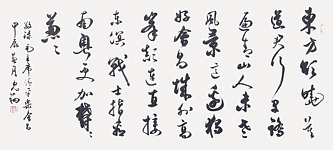 東方欲曉莫
道君行早踏
遍青山人未老
風景這邊獨
好會昌城外高
峯顛連直接
東溟戰士指看
南粵更加鬱鬱
葱葱
毛主席清平樂會昌
甲辰月